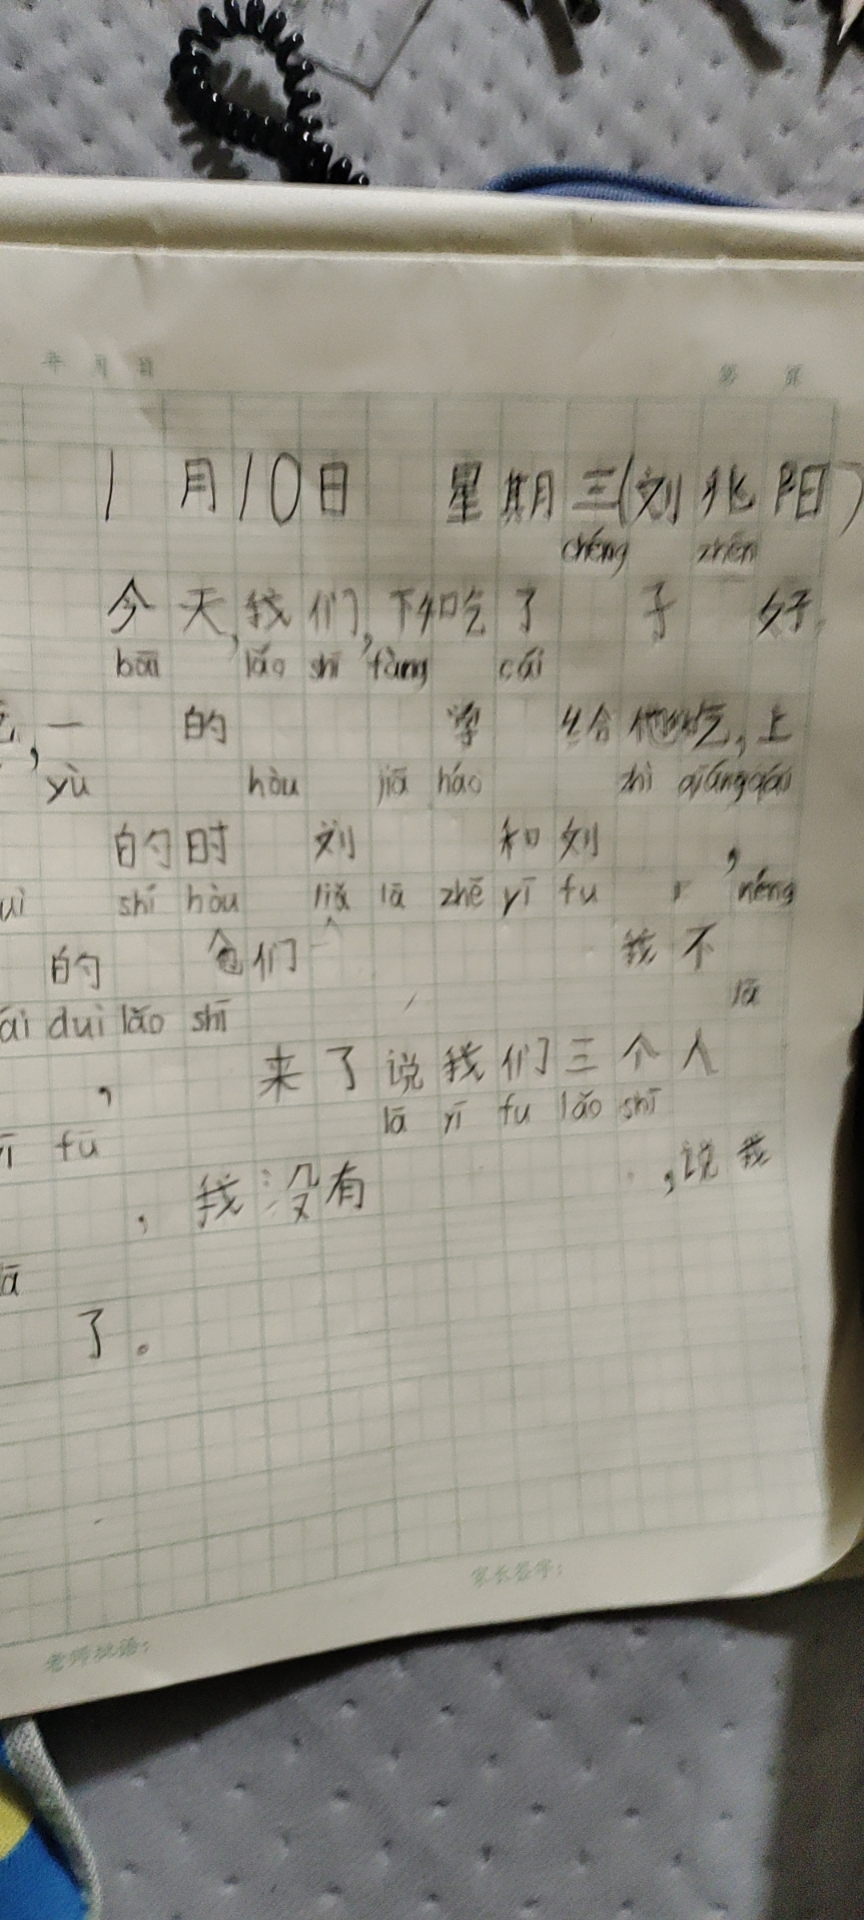 年 月 日 第 页
1月10日 星期三(刘兆阳)
chéng zhēn
今天,我们,下和吃了 子 好,
bāi lǎo shī fàng cái
,一 的 学 给他吃,上
yù hòu jiā háo zhì qiáng
的时 刘 和刘 ,
uì shí hòu liǎ lā zhē yī fu néng
的 们 我不
ái duì lǎo shī lā
, 来了说我们三个人
ī fū lā yī fu lǎo shī
,我没有 ,说我
ā
了。
家长签字:
老师批语: